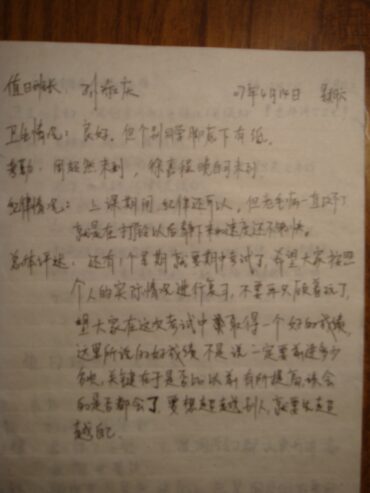 值日班长 刘 庆 07年4月16日 星期一
卫生情况：良好。但个别同学脚底下有纸。
考勤：周 然未到，徐嘉程晚自习未到
纪律情况：上课期间纪律还可以，但老毛病一直改不了
就是在打铃以后静下来的速度还不够快。
总体评述：还有1个星期就要期中考试了，希望大家按照
个人的实际情况进行复习，不要再只顾着玩了，
望大家在这次考试中 取得一个好的成绩
这里所说的好成绩不是说一定要前进多少
多少，关键在于是否比以前有所提高，该会
的是否都会了，要想超越别人，就要先超
越自己